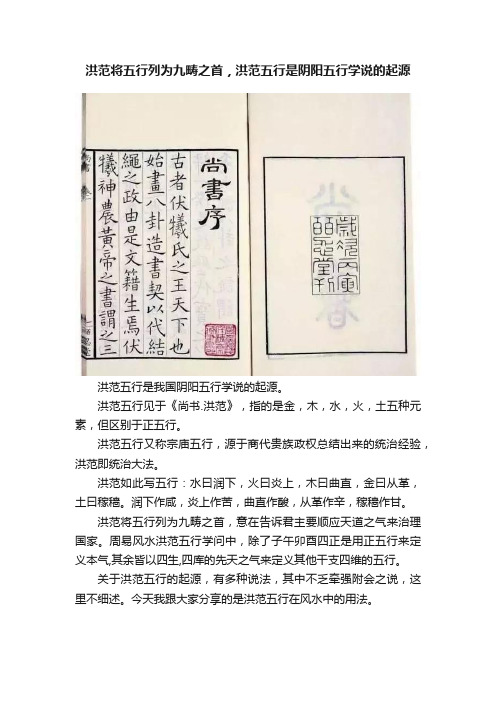 洪范将五行列为九畴之首，洪范五行是阴阳五行学说的起源
歲次丙寅
皕忍堂刊
尚書序
古者伏犧氏之王天下也
始畫八卦造書契以代結
繩之政由是文籍生焉伏
犧神農黃帝之書謂之三
洪范五行是我国阴阳五行学说的起源。
洪范五行见于《尚书.洪范》，指的是金，木，水，火，土五种元
素，但区别于正五行。
洪范五行又称宗庙五行，源于商代贵族政权总结出来的统治经验，
洪范即统治大法。
洪范如此写五行：水曰润下，火曰炎上，木曰曲直，金曰从革，
土曰稼穑。润下作咸，炎上作苦，曲直作酸，从革作辛，稼穑作甘。
洪范将五行列为九畴之首，意在告诉君主要顺应天道之气来治理
国家。周易风水洪范五行学问中，除了子午卯酉四正是用正五行来定
义本气,其余皆以四生,四库的先天之气来定义其他干支四维的五行。
关于洪范五行的起源，有多种说法，其中不乏牵强附会之说，这
里不细述。今天我跟大家分享的是洪范五行在风水中的用法。